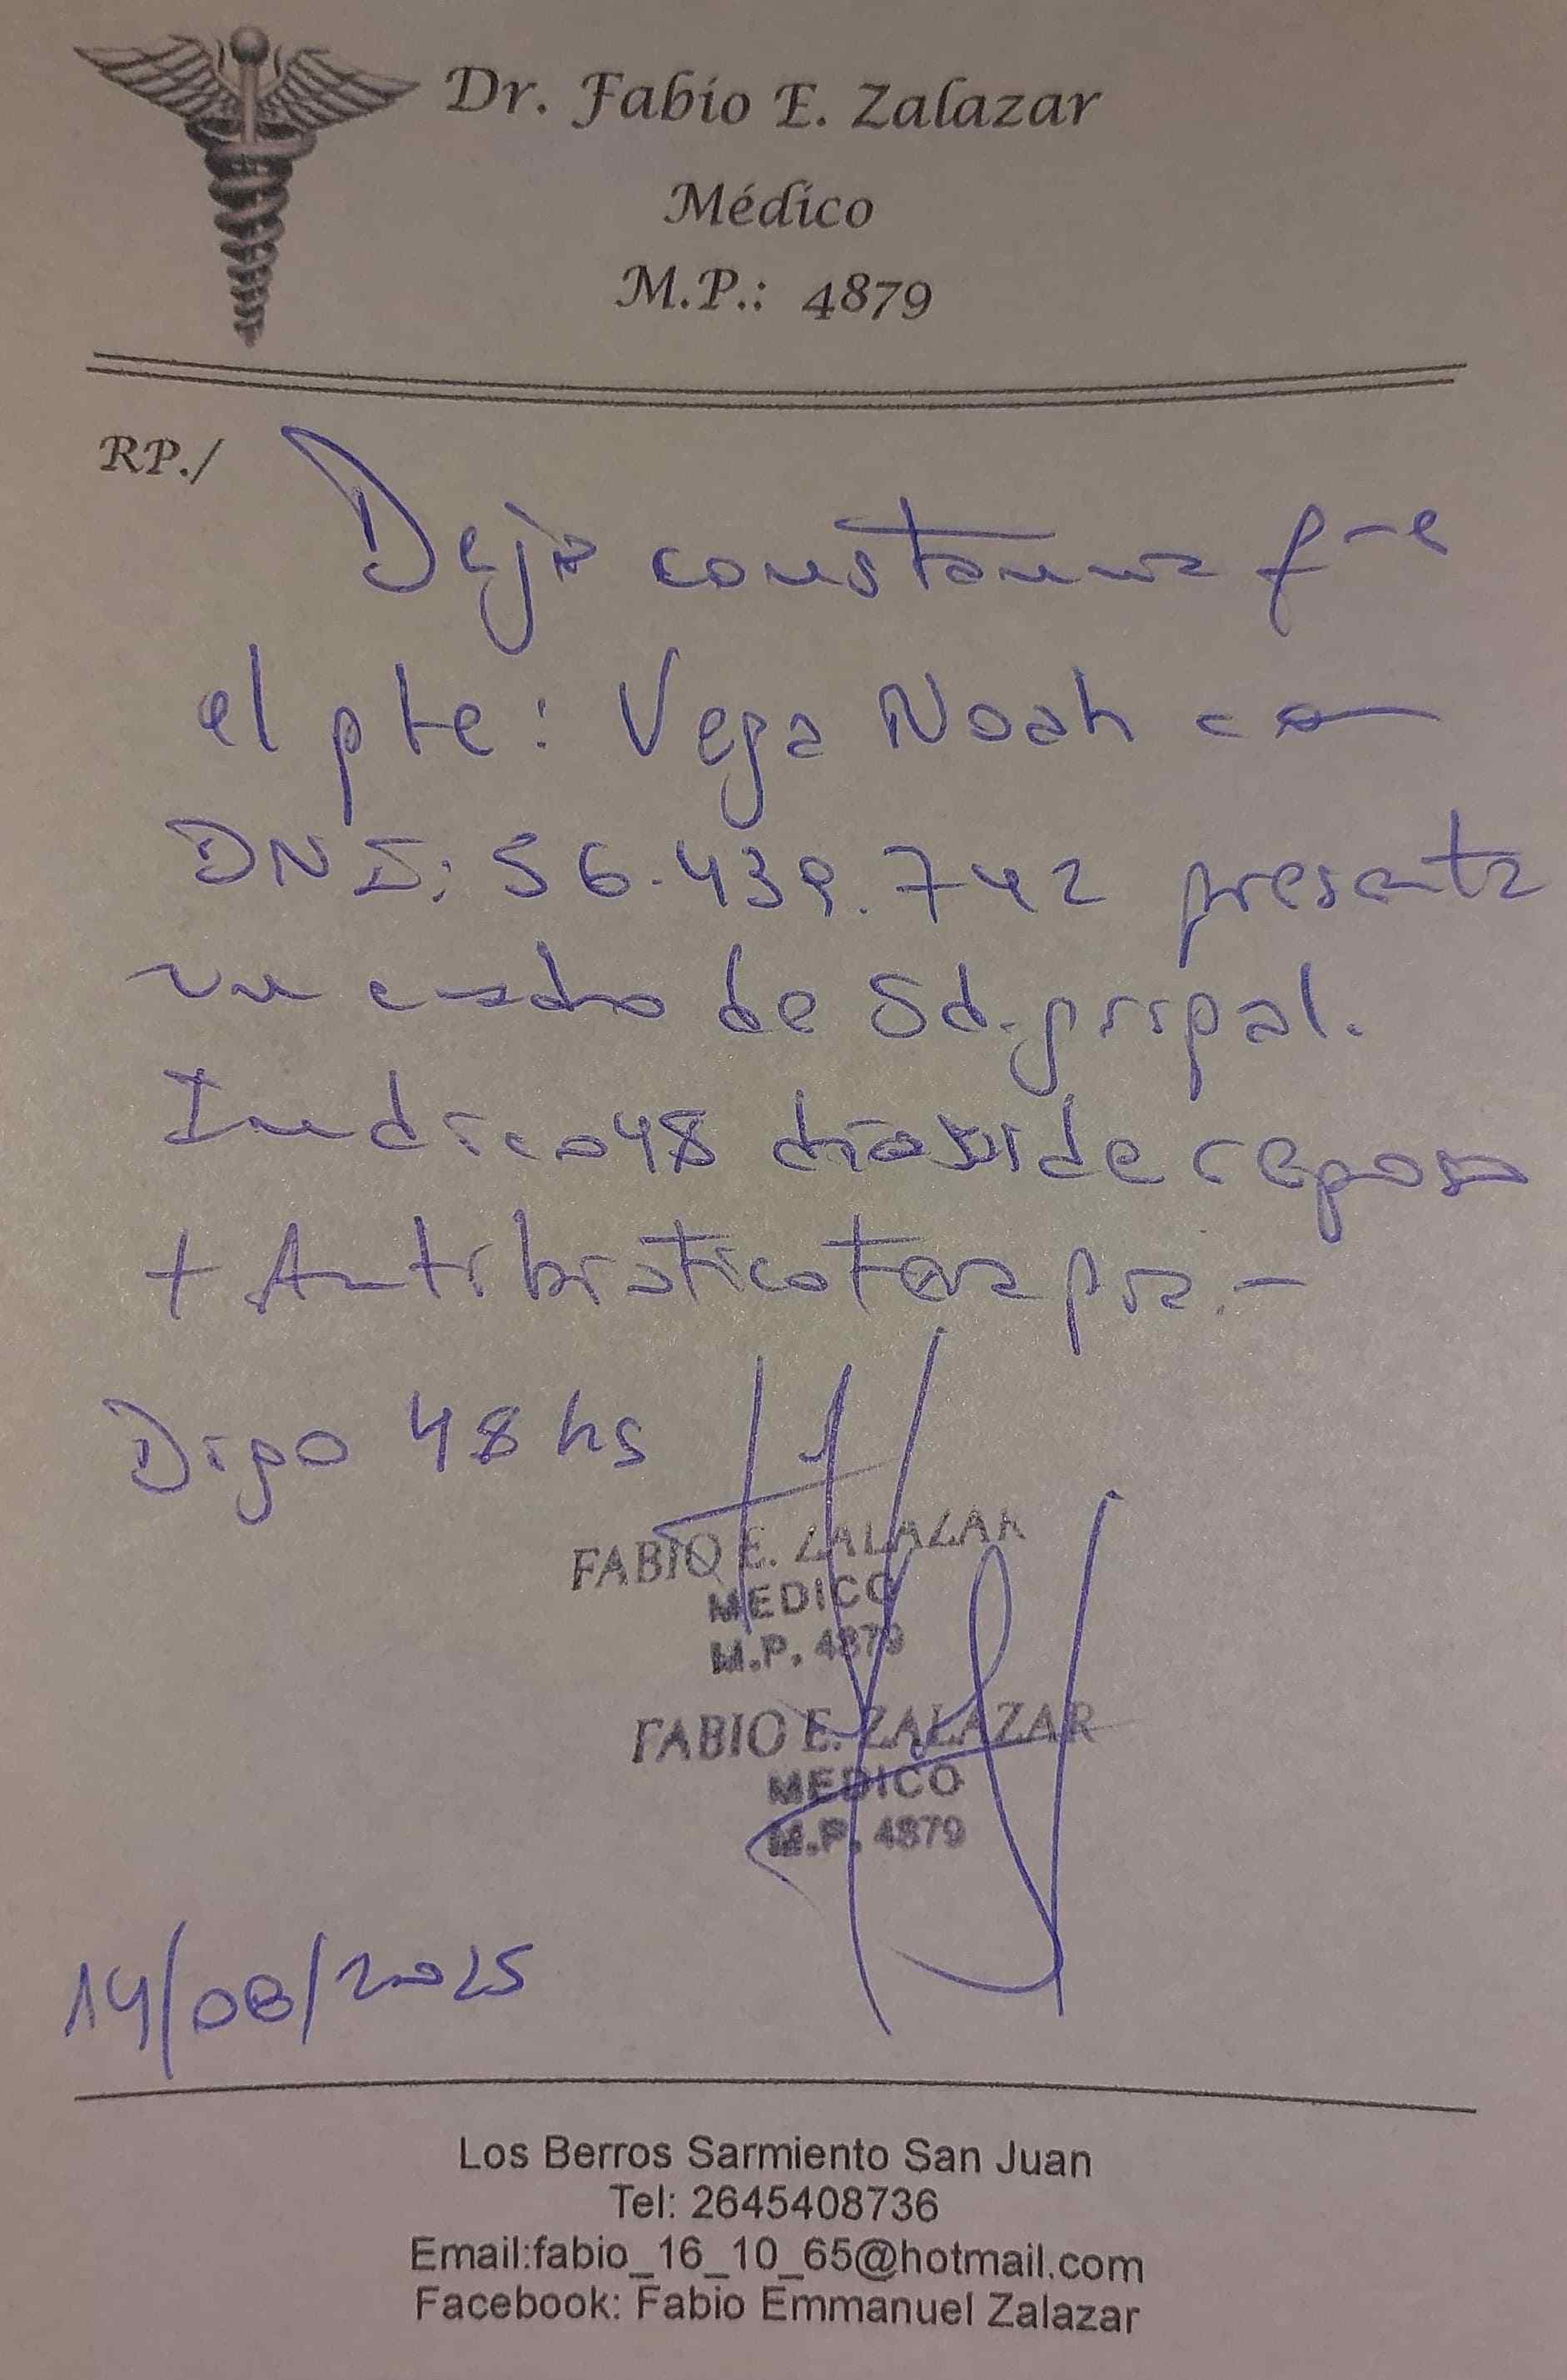 Dr. Fabio E. Zalazar
Médico
M.P.: 4879
RP./
Dejo constancia q-e
el pte: Vega Noah con
DNI: 56.439.742 presenta
un cuadro de Sd. gripal.
Indico 48 de reposo
+ Antibioticoterapia.-
Digo 48 hs
FABIO E. ZALAZAR
MEDICO
M.P. 4879
FABIO E. ZALAZAR
MEDICO
M.P. 4879
14/08/2025
Los Berros Sarmiento San Juan
Tel: 2645408736
Email:fabio_16_10_65@hotmail.com
Facebook: Fabio Emmanuel Zalazar